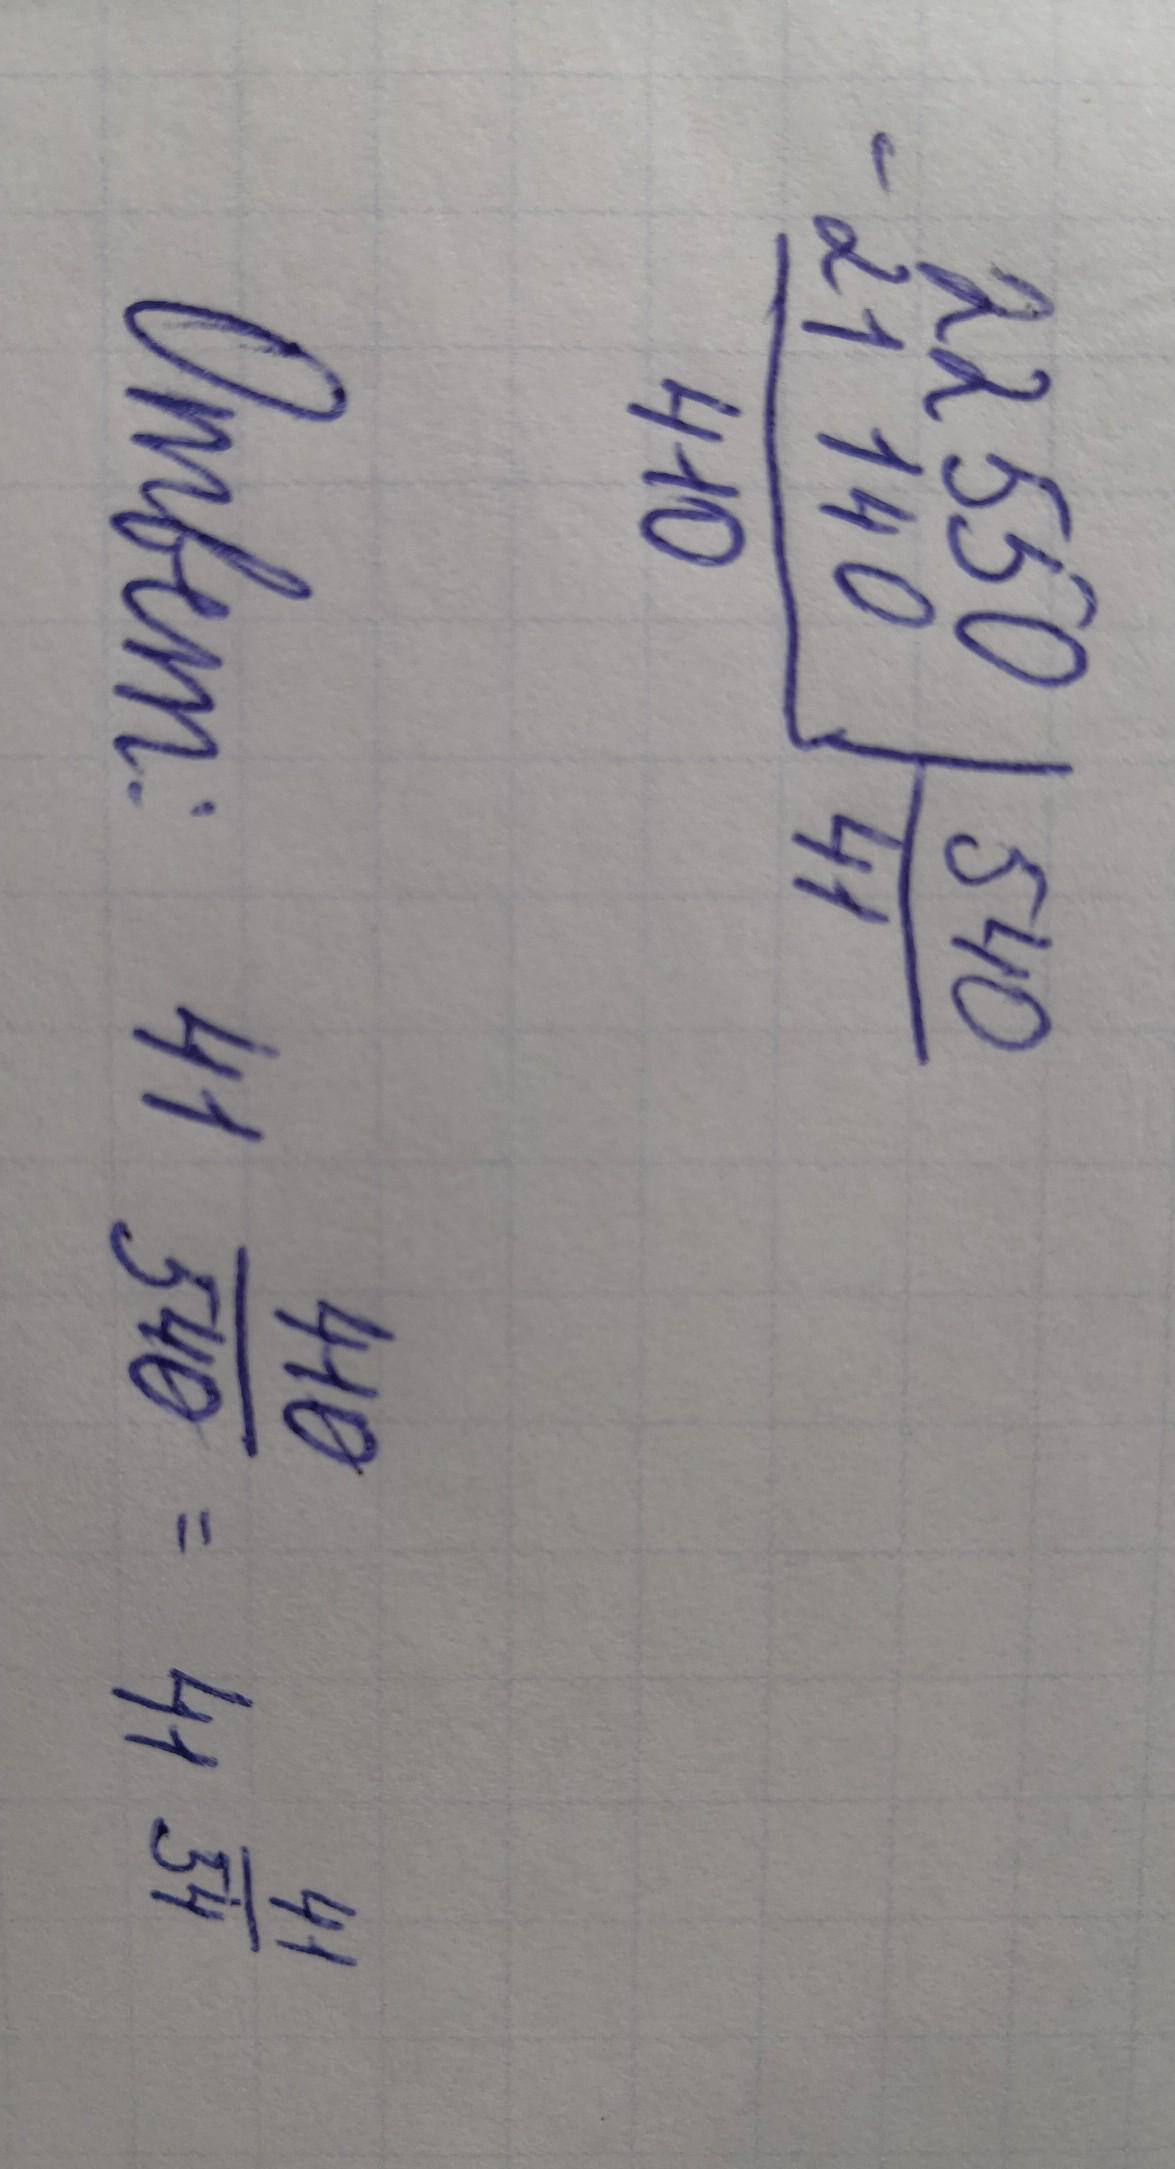 22550 | 540
- 21 140 | 41
410
Ответ: 41 410/540 = 41 41/54